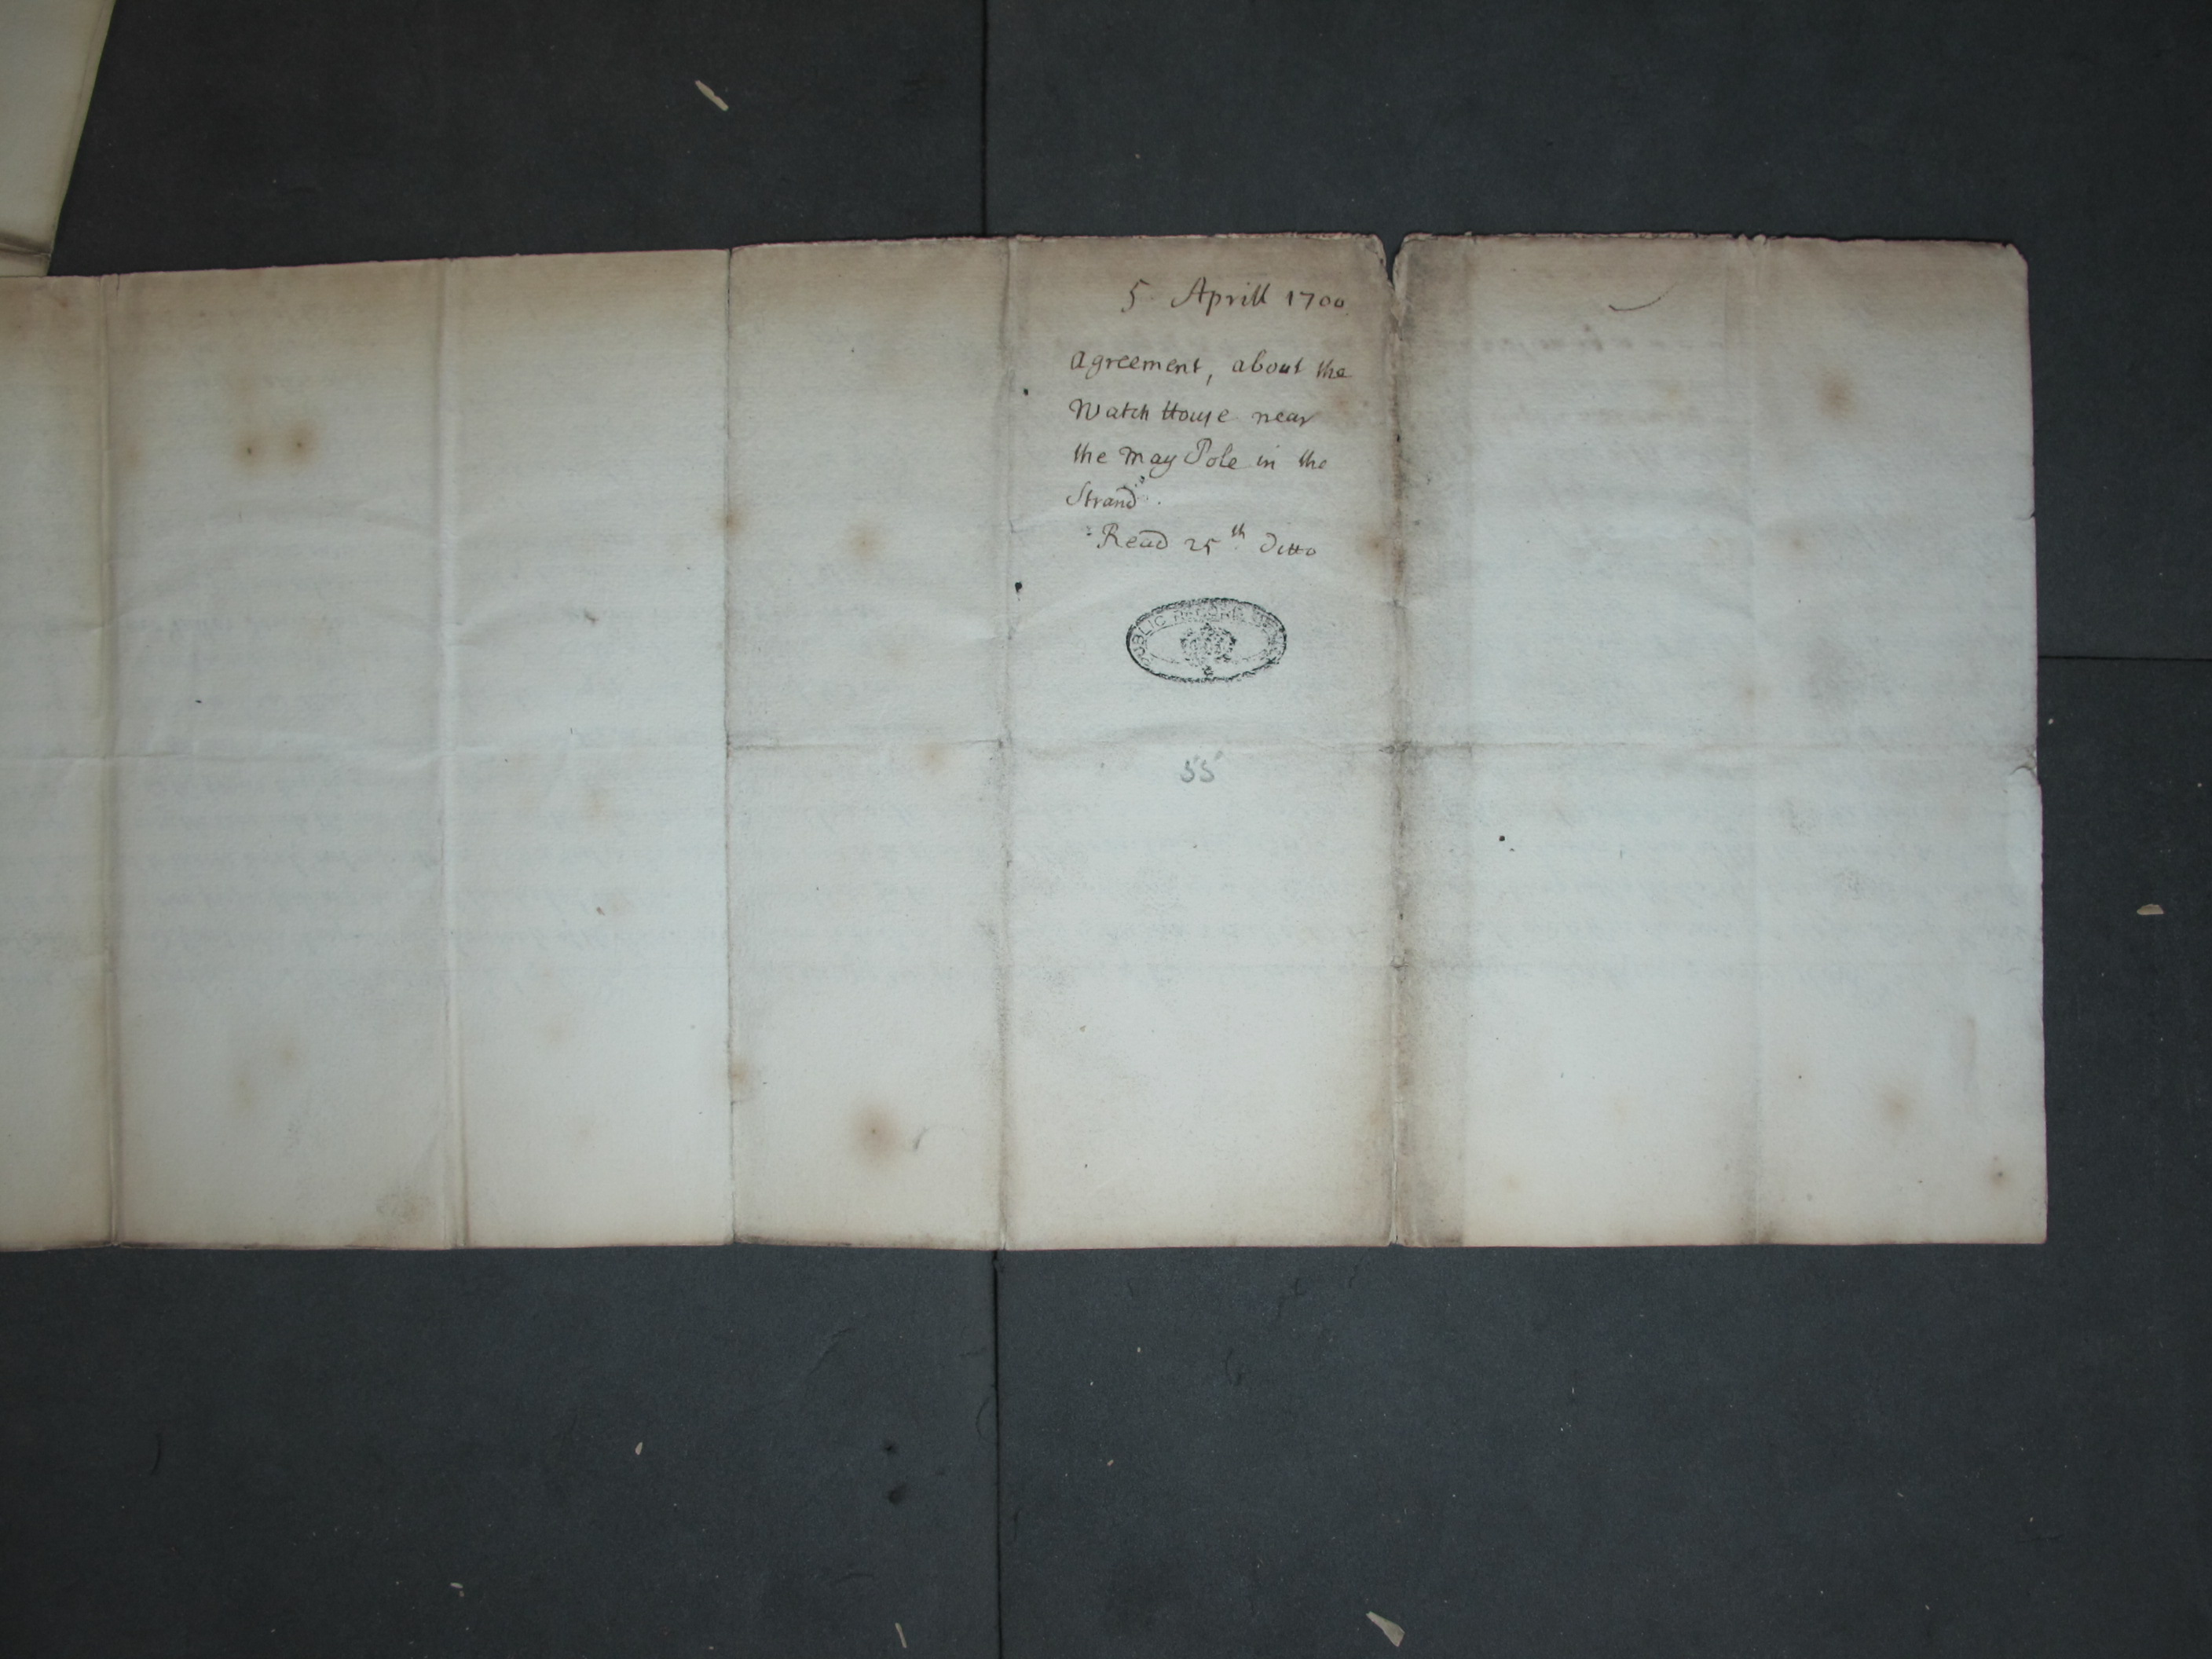 5 Aprill 1700
Agreement, about the
Watch House near
the May Pole in the
Strand.
Read 25th Ditto
PUBLIC RECORD OFFICE
55